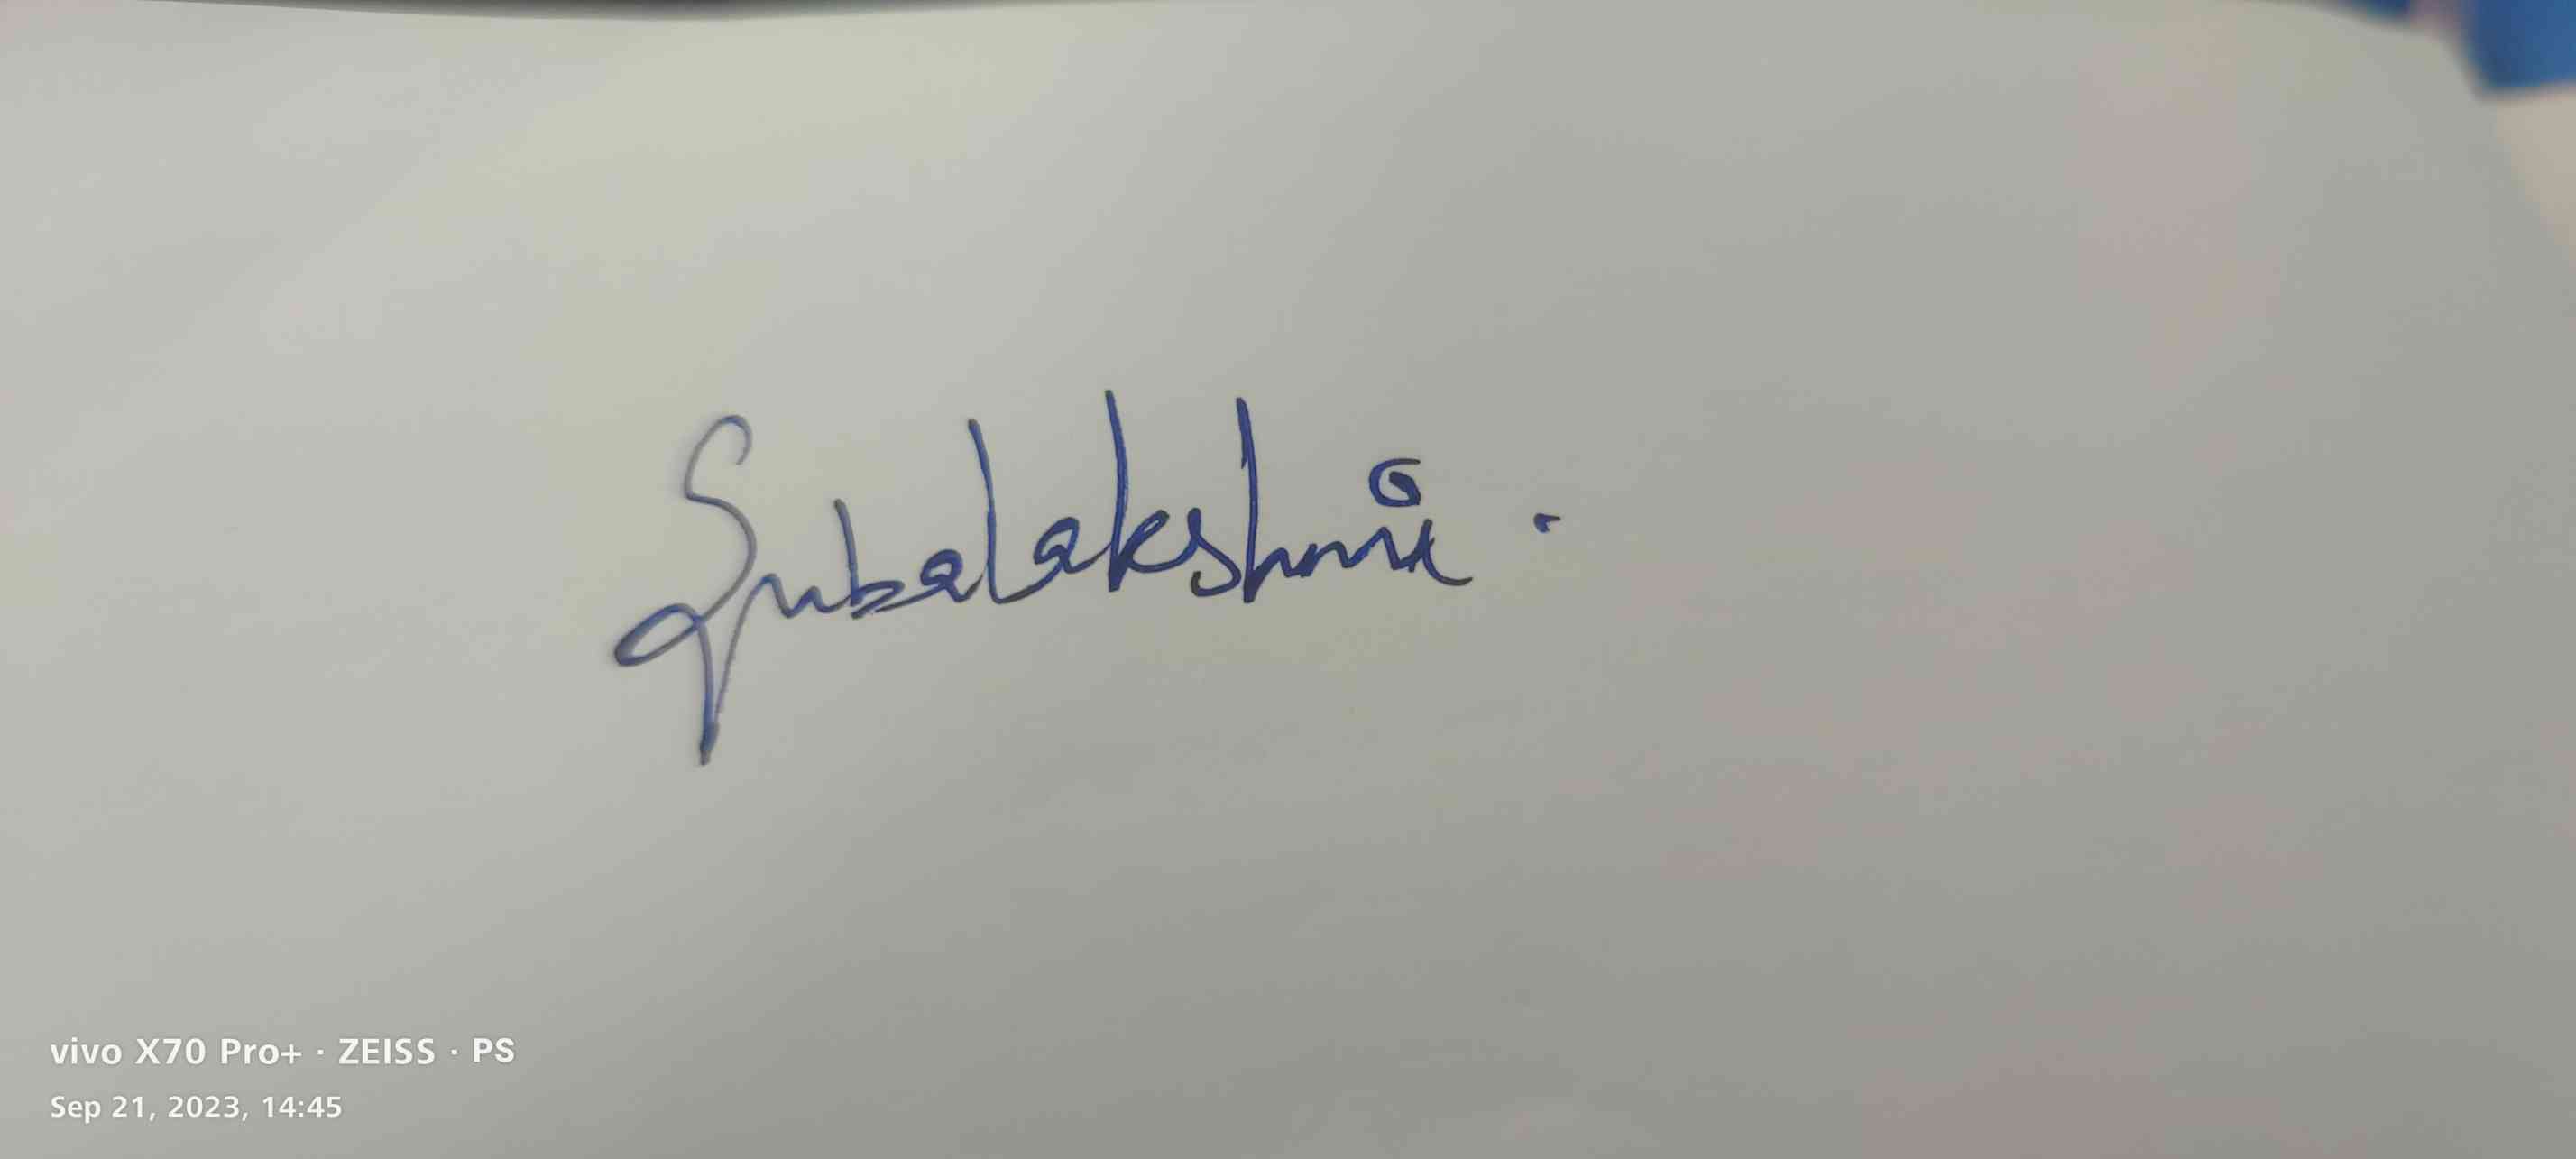 Subalakshmi .
vivo X70 Pro+ · ZEISS · PS
Sep 21, 2023, 14:45